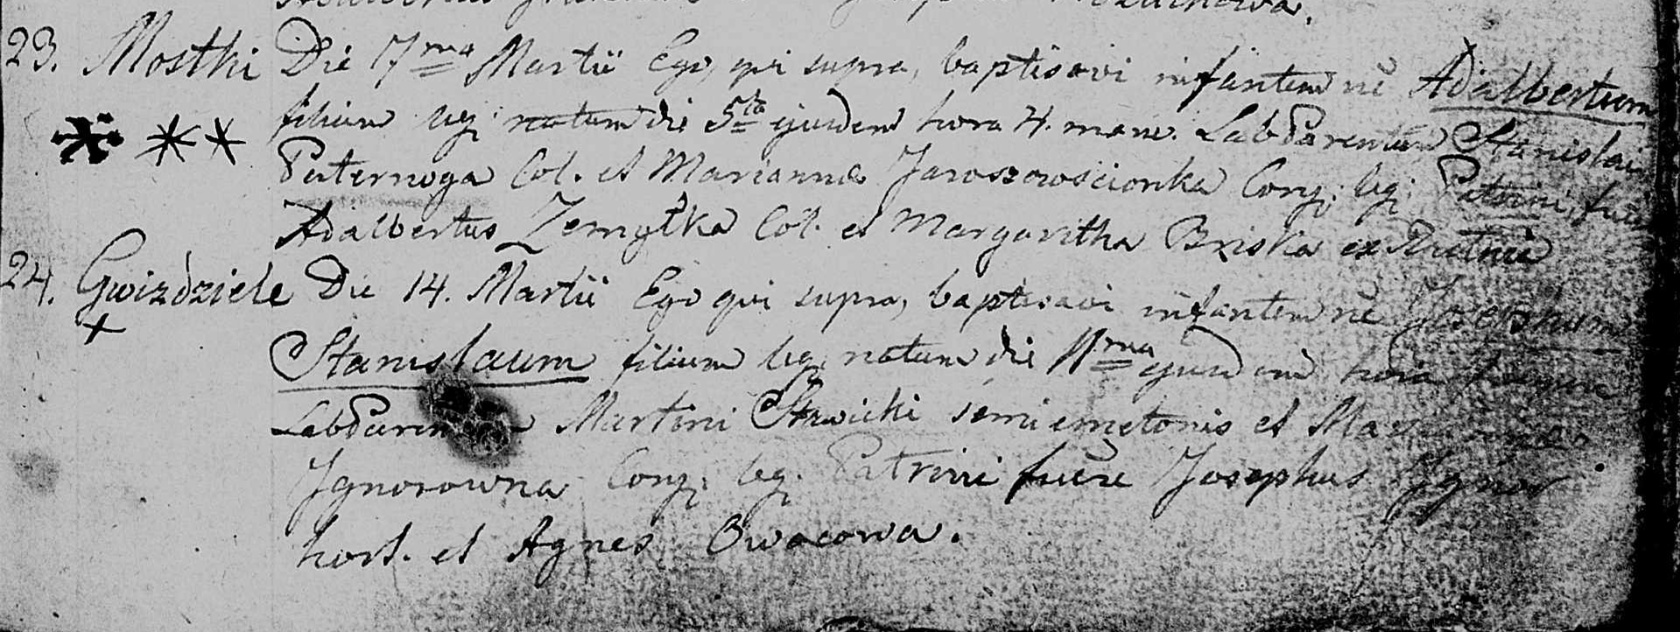 23. Mosthi Die 7ma Martii Ego, qui supra, baptisavi infantem nē Adalbertum
filium leg: natum die 5ta ejusdem hora 4. mane. Lab Parentum Stanislai
Paternoga Col. et Marianna Jaroszowścionka Conj: leg: Patrini fuere
Adalbertus Zemytka Col. et Margaritha Briska ex Rutnie
24. Gwizdziele Die 14. Martii Ego qui supra, baptisavi infantem nē Josephum
Stanislaum filium leg: natum die 11ma ejusdem hora
Lab Martini Stawicki semiemetonis et
Jgnorowna Conj: leg: Patrini fuēre Josephus Jgnor
hort. et Agnes Owocowa.